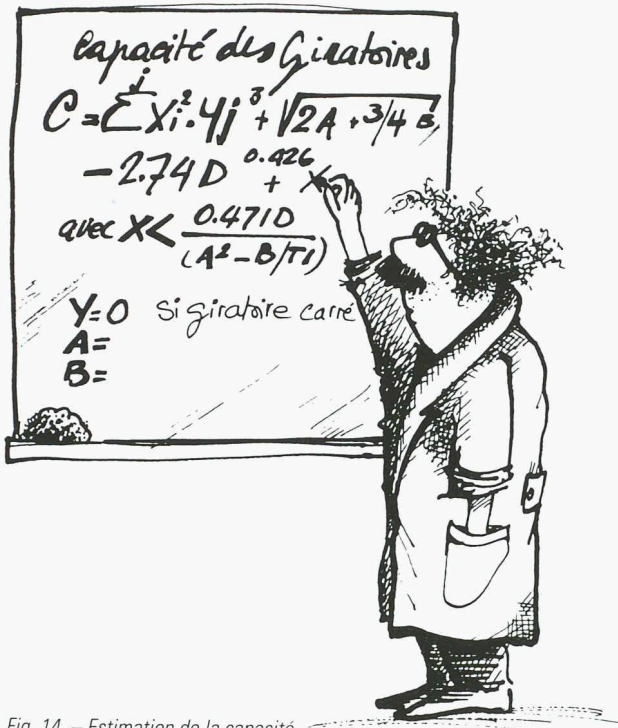 Capacité des Giratoires
C = Σ^j Xi².Yj³ + √2A + 3/4 B
- 2.74 D^0.426 + X
avec X < 0.471D / (A² - B/T1)
Y=0 si giratoire carré
A=
B=
Fig. 14. – Estimation de la capacité